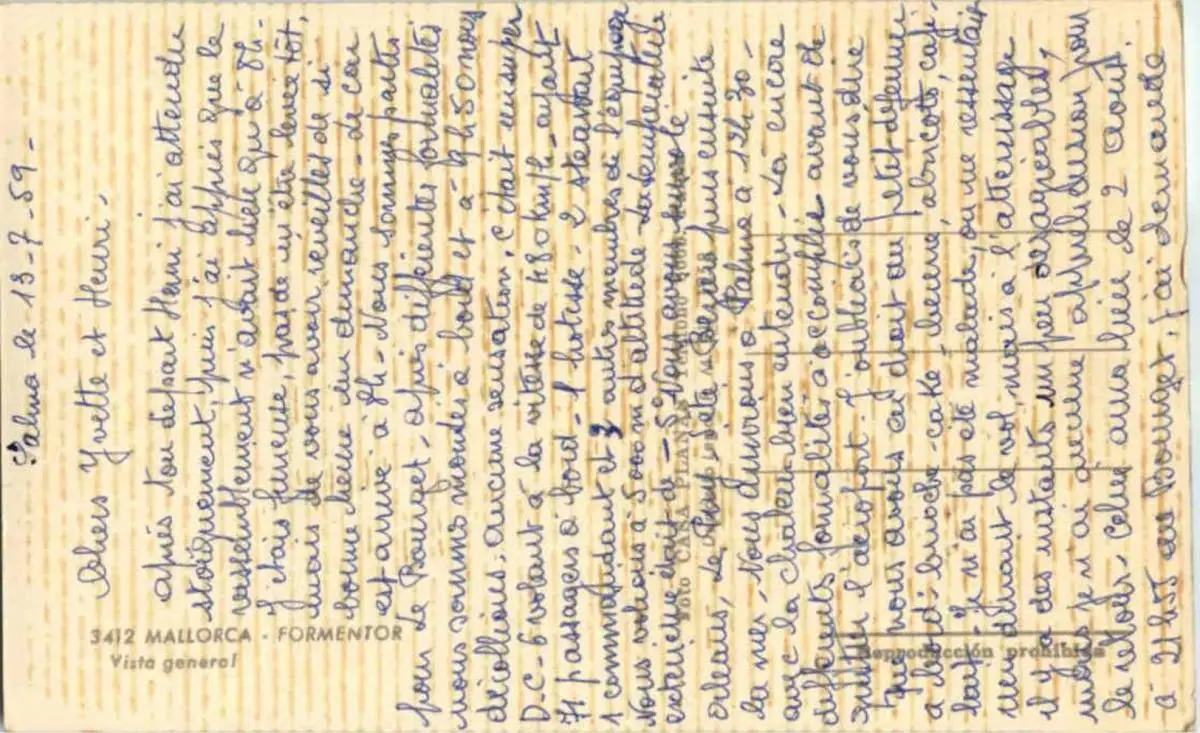 Palma le 13-7-59-
Chers Yvette et Henri,
après ton départ Henri j'ai attendu
stoïquement, puis j'ai appris que le
rassemblement n'avait lieu qu'à 8h-
J'étais furieuse, pas de m'être levée tôt,
mais de vous avoir réveillés de si
bonne heure un dimanche. Le car
est arrivé à 8h- Nous sommes partis
pour Le Bourget- après différentes formalités
nous sommes montés à bord et à 9h50 nous
décollions, aucune sensation, c'était un super
D-C-6 volant à la vitesse de 480 km/h- ayant
71 passagers à bord- 1 hôtesse- 2 stewart
1 commandant et 3 autres membres de l'équipage
Nous volions à 5000m d'altitude la température
extérieure était de -5° Nous avons survolé
Orléans, Le Puy, Sète puis ensuite
la mer- Nous arrivions à Palma à 12h30-
avec la chaleur bien entendu- Là encore
différents formalités à accomplir avant de
quitter l'aéroport. J'oubliais de vous dire
que nous avons eu droit au petit déjeuner
à bord: brioche- cake beurre, abricots, café-
lait- Je n'ai pas été malade, on ne ressentait
rien durant le vol, mais à l'atterrissage
il y a des instants un peu désagréables,
mais je n'ai aucune appréhension pour
le retour- Celui aura lieu le 2 août.
à 21h55 au Bourget, j'ai demandé
3412 MALLORCA - FORMENTOR
Vista general
Foto CASA PLANAS
Reproducción prohibida